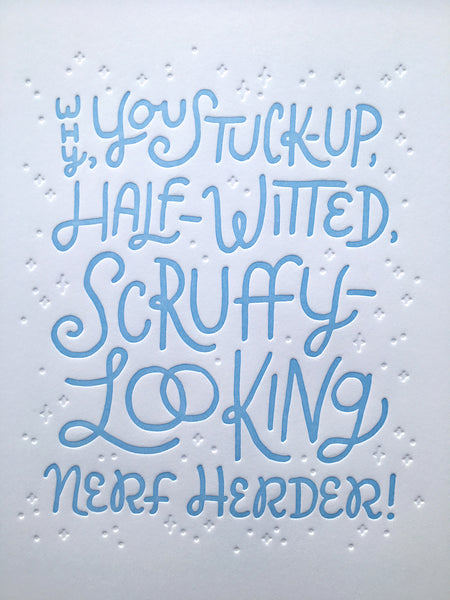 WHY, YOU STUCK-UP,
HALF-WITTED,
SCRUFFY-
LOOKING
NERF HERDER!